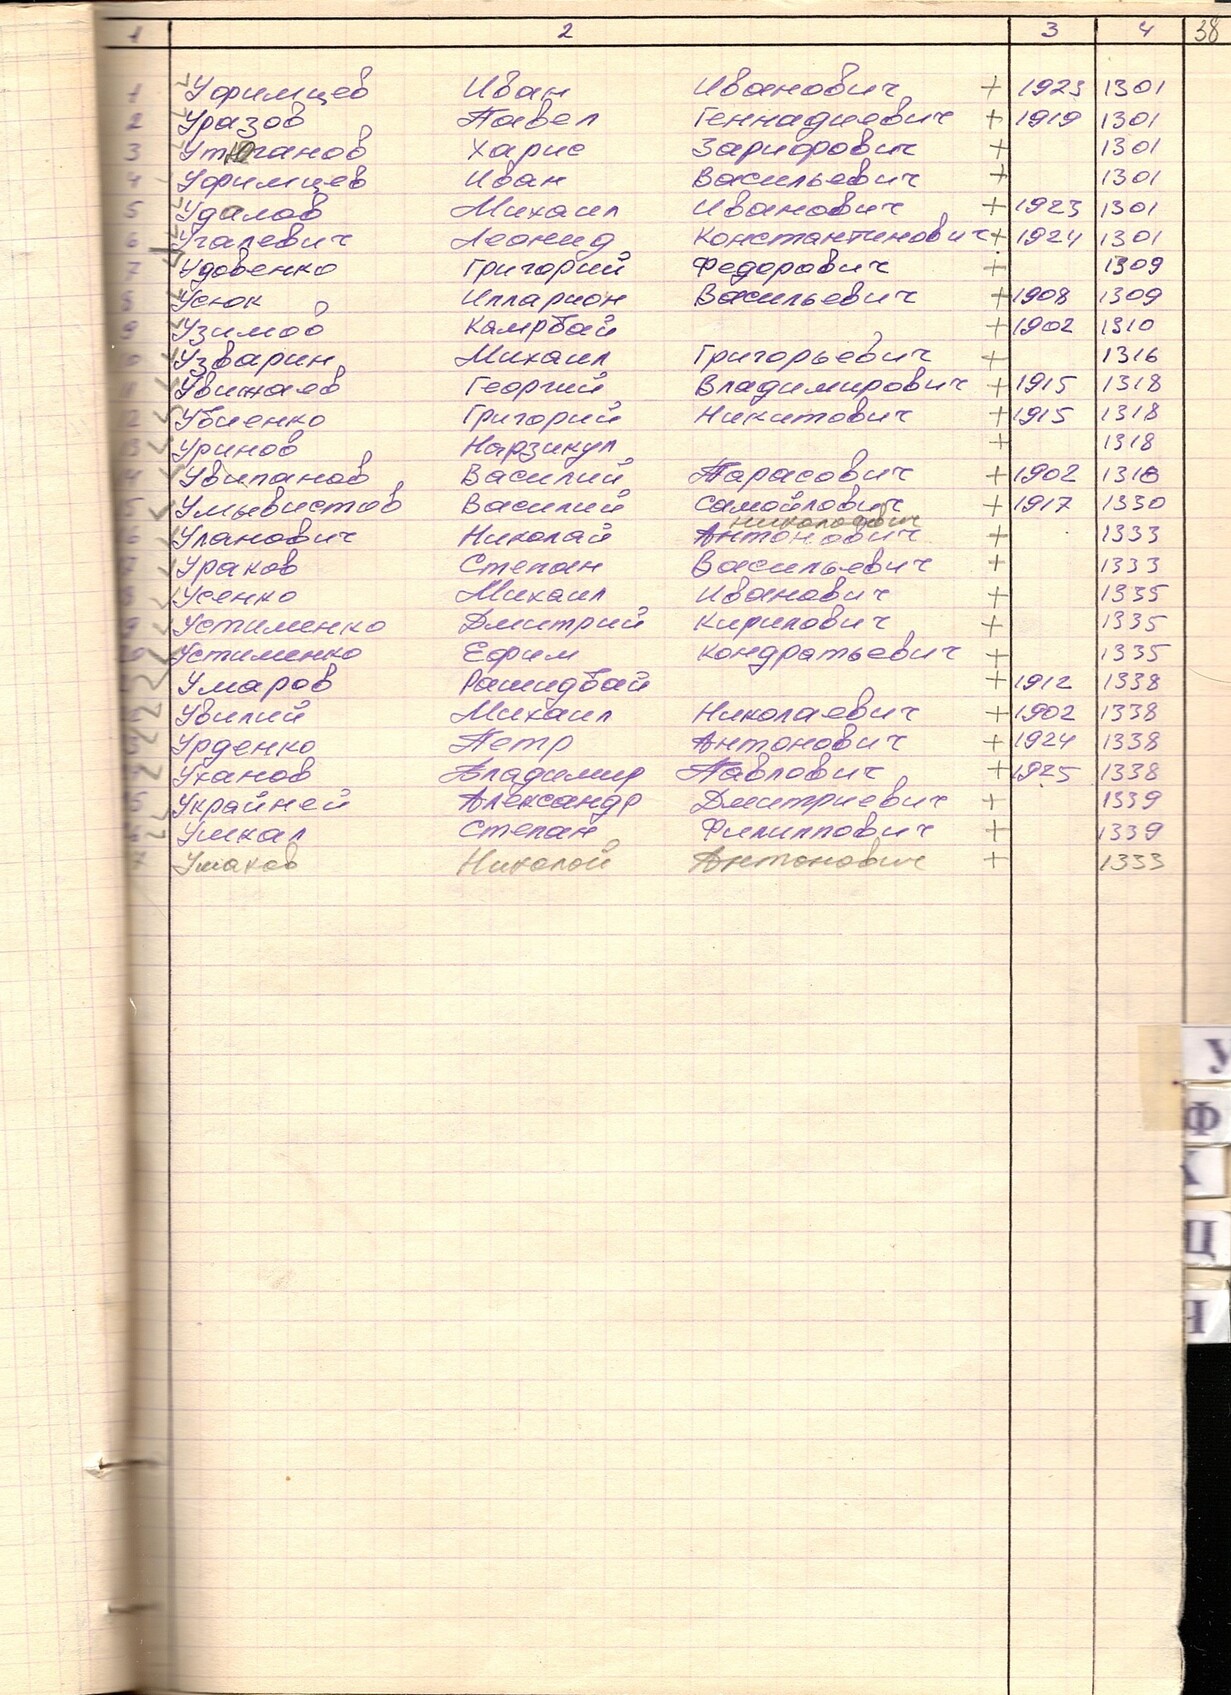 1 2 3 4 38
1 Уфимцев Иван Иванович + 1923 1301
2 Уразов Павел Геннадиевич + 1919 1301
3 Утюганов Харис Зарифович + 1301
4 Уфимцев Иван Васильевич + 1301
5 Удалов Михаил Иванович + 1923 1301
6 Угалевич Леонид Константинович + 1924 1301
7 Удовенко Григорий Федорович + 1309
8 Усюк Илларион Васильевич + 1908 1309
9 Узимов Камрбай + 1902 1310
Узварин Михаил Григорьевич + 1316
11 Увижаев Георгий Владимирович + 1915 1318
12 Убиенко Григорий Никитович + 1915 1318
Уринов Нарзикул + 1318
Увипанов Василий Тарасович + 1902 1318
5 Умывистов Василий Самойлович + 1917 1330
Николаевич
6 Уланович Николай Антонович + 1333
Ураков Степан Васильевич + 1333
8 Усенко Михаил Иванович + 1335
9 Устименко Дмитрий Кирилович + 1335
Устименко Ефим Кондратьевич + 1335
Умаров Рашидбай + 1912 1338
Увилий Михаил Николаевич + 1902 1338
Урденко Петр Антонович + 1924 1338
Уханов Владимир Павлович + 1925 1338
5 Украйней Александр Дмитриевич + 1339
6 Ушкал Степан Филиппович + 1339
7 Ушаков Николай Антонович + 1333
У
Ф
Ц